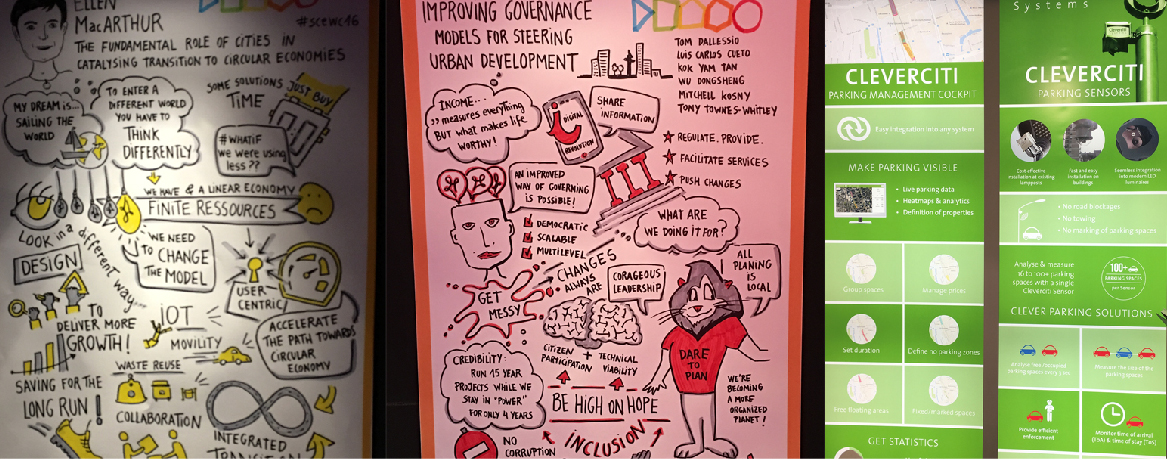 ELLEN
MACARTHUR
#scewc16
THE FUNDAMENTAL ROLE OF CITIES IN
CATALYSING TRANSITION TO CIRCULAR ECONOMIES
MY DREAM IS...
SAILING THE
WORLD
TO ENTER A
DIFFERENT WORLD
YOU HAVE TO
THINK
DIFFERENTLY
SOME SOLUTIONS
TIME
JUST BUY
#WHATIF
we were using
less??
WE HAVE A LINEAR ECONOMY
FINITE RESSOURCES
LOOK in a different way
DESIGN
WE NEED
TO CHANGE
THE MODEL
USER
CENTRIC
TO
DELIVER MORE
GROWTH!
IOT
MOBILITY
ACCELERATE
THE PATH TOWARDS
CIRCULAR
ECONOMY
WASTE REUSE
SAVING FOR THE
LONG RUN!
COLLABORATION
INTEGRATED
IMPROVING GOVERNANCE
MODELS FOR STEERING
URBAN DEVELOPMENT
TOM DALLESSIO
LUIS CARLOS CUETO
KOK YAM TAN
WU DONGSHENG
MITCHELL KOSNY
TONY TOWNES-WHITLEY
INCOME...
measures everything
But what makes life
WORTHY!
DIGITAL
REVOLUTION
SHARE
INFORMATION
REGULATE. PROVIDE.
FACILITATE SERVICES
PUSH CHANGES
AN IMPROVED
WAY OF GOVERNING
IS POSSIBLE!
DEMOCRATIC
SCALABLE
MULTILEVEL
WHAT ARE
WE DOING IT FOR?
CHANGES
ALWAYS
ARE
GET
MESSY
CORAGEOUS
LEADERSHIP
ALL
PLANING
IS
LOCAL
CITIZEN
PARTICIPATION + TECHNICAL
VIABILITY
DARE
TO
PLAN
CREDIBILITY:
RUN 15 YEAR
PROJECTS WHILE WE
STAY IN "POWER"
FOR ONLY 4 YEARS
BE HIGH ON HOPE
WE'RE
BECOMING
A MORE
ORGANIZED
PLANET!
NO
CORRUPTION
INCLUSION
CLEVERCITI
PARKING MANAGEMENT COCKPIT
Easy integration into any system
MAKE PARKING VISIBLE
• Live parking data
• Heatmaps & analytics
• Definition of properties
Group spaces
Manage prices
Set duration
Define no parking zones
Free floating areas
Fixed marked spaces
GET STATISTICS
Systems
CLEVERCITI
PARKING SENSORS
Cost effective
installation at existing
lampposts
Fast and easy
installation on
buildings
Seamless integration
into modern LED
luminaires
• No road blockages
• No towing
• No marking of parking spaces
Analyse & measure
parking
spaces with a single
Cleverciti Sensor
100+
CLEVER PARKING SOLUTIONS
Provide efficient
enforcement
Monitor time of arrival
(ETA) & time of stay (ToS)